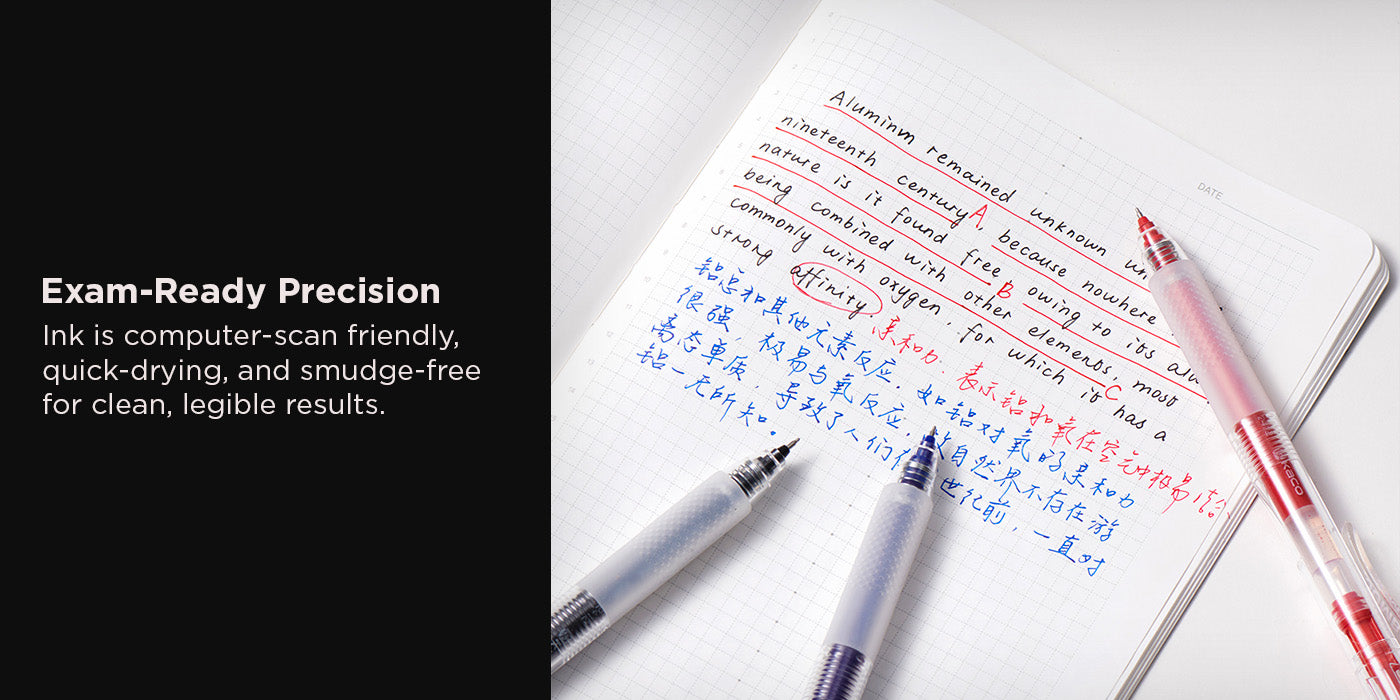 Exam-Ready Precision
Ink is computer-scan friendly,
quick-drying, and smudge-free
for clean, legible results.
DATE
Aluminum remained unknown
nineteenth century A, because nowhere
nature is it found free B owing to its
being combined with other elements, most
commonly with oxygen, for which it has a C
strong affinity.
亲和力: 表示铝和氧在空气中极易
铝总和其他元素反应. 如铝对氧的亲和力
很强, 极易与氧反应, 故自然界不存在游
离态单质, 导致了人们 世纪前, 一直对
铝一无所知。
kaco